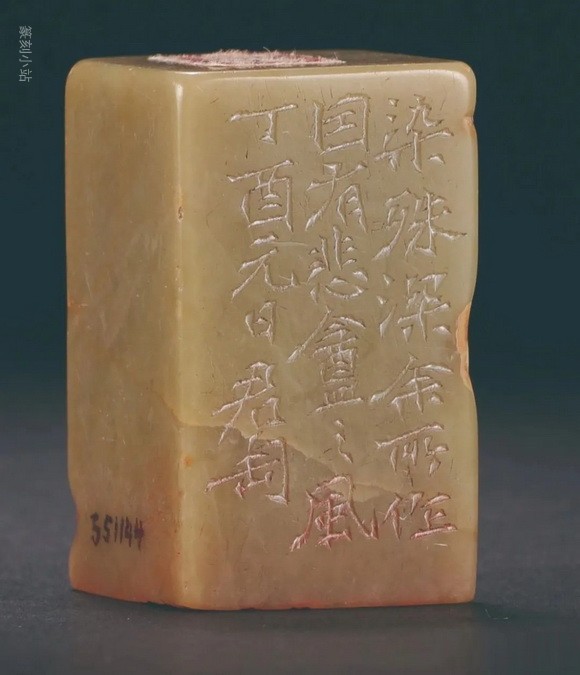 染殊深余所作
囙有悲盦之風
丁酉元日君匋
351144
篆刻小站